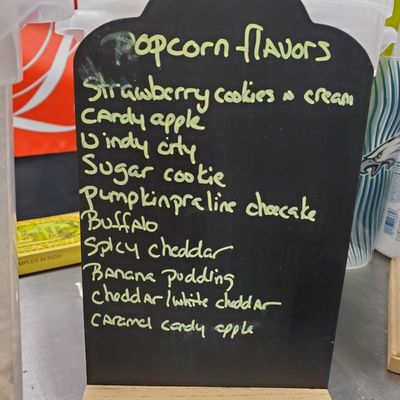 Popcorn flavors
Strawberry cookies n cream
Candy apple
Windy city
Sugar cookie
Pumpkin praline cheecake
Buffalo
Spicy cheddar
Banana pudding
Cheddar/white cheddar
Caramel candy apple
MPLES IN INDIA